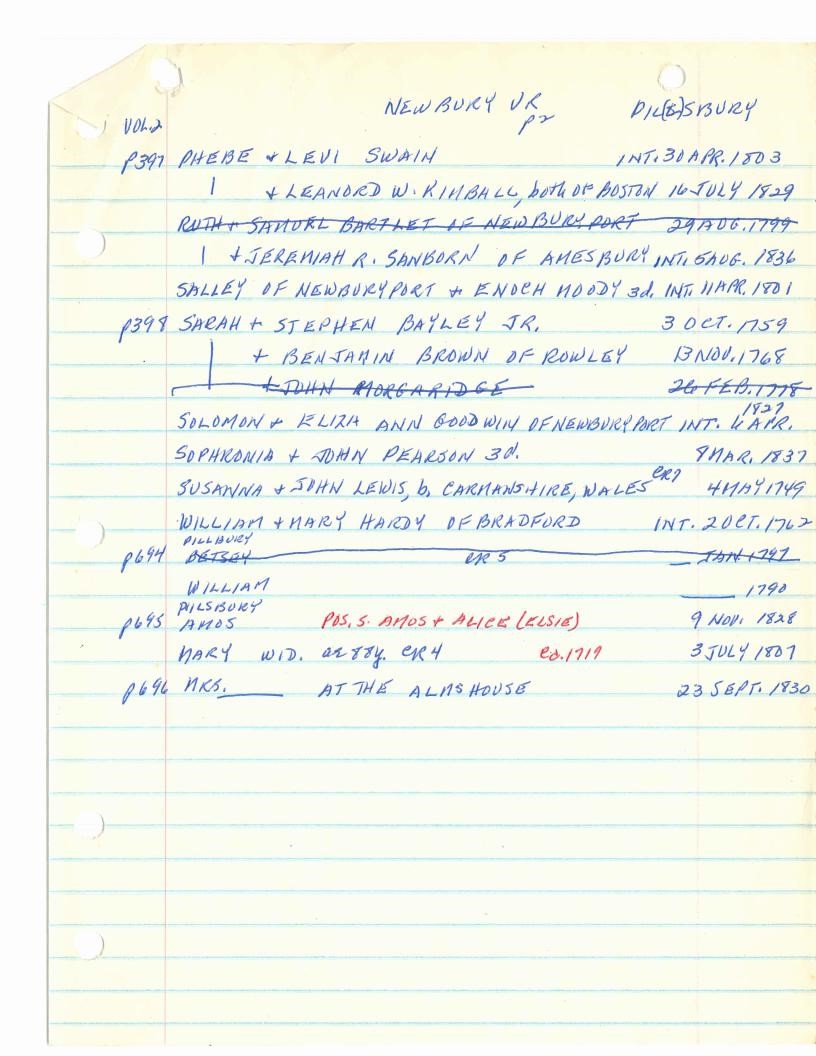 NEWBURY VR PIL(S)SBURY
p2
VOL.2
p397 PHEBE + LEVI SWAIN INT. 30 APR. 1803
| + LEANORD W. KIMBALL, both OF BOSTON 16 JULY 1829
RUTH + SAMUEL BARTLET OF NEWBURYPORT 29 AUG. 1799
| + JEREMIAH R. SANBORN OF AMESBURY INT. 5 AUG. 1836
SALLEY OF NEWBURYPORT + ENOCH MOODY 3d. INT. 11 APR. 1801
p398 SARAH + STEPHEN BAYLEY JR. 3 OCT. 1759
| + BENJAMIN BROWN OF ROWLEY 13 NOV. 1768
+ JOHN MORGARIDGE 26 FEB. 1778
SOLOMON + ELIZA ANN GOODWIN OF NEWBURYPORT INT. 6 APR. 1827
SOPHRONIA + JOHN PEARSON 3d. 8 MAR. 1837
SUSANNA + JOHN LEWIS, b. CARMANSHIRE, WALES CR7 4 MAY 1749
WILLIAM + MARY HARDY OF BRADFORD INT. 2 OCT. 1762
PILLBURY
p694 BETSEY CR5 __ JAN. 1797
WILLIAM ____ 1790
PILSBURY
p695 AMOS POS. S. AMOS + ALICE (ELSIE) 9 NOV. 1828
MARY WID. ae 88y. CR4 Ca. 1719 3 JULY 1807
p696 MRS. ____ AT THE ALMSHOUSE 23 SEPT. 1830